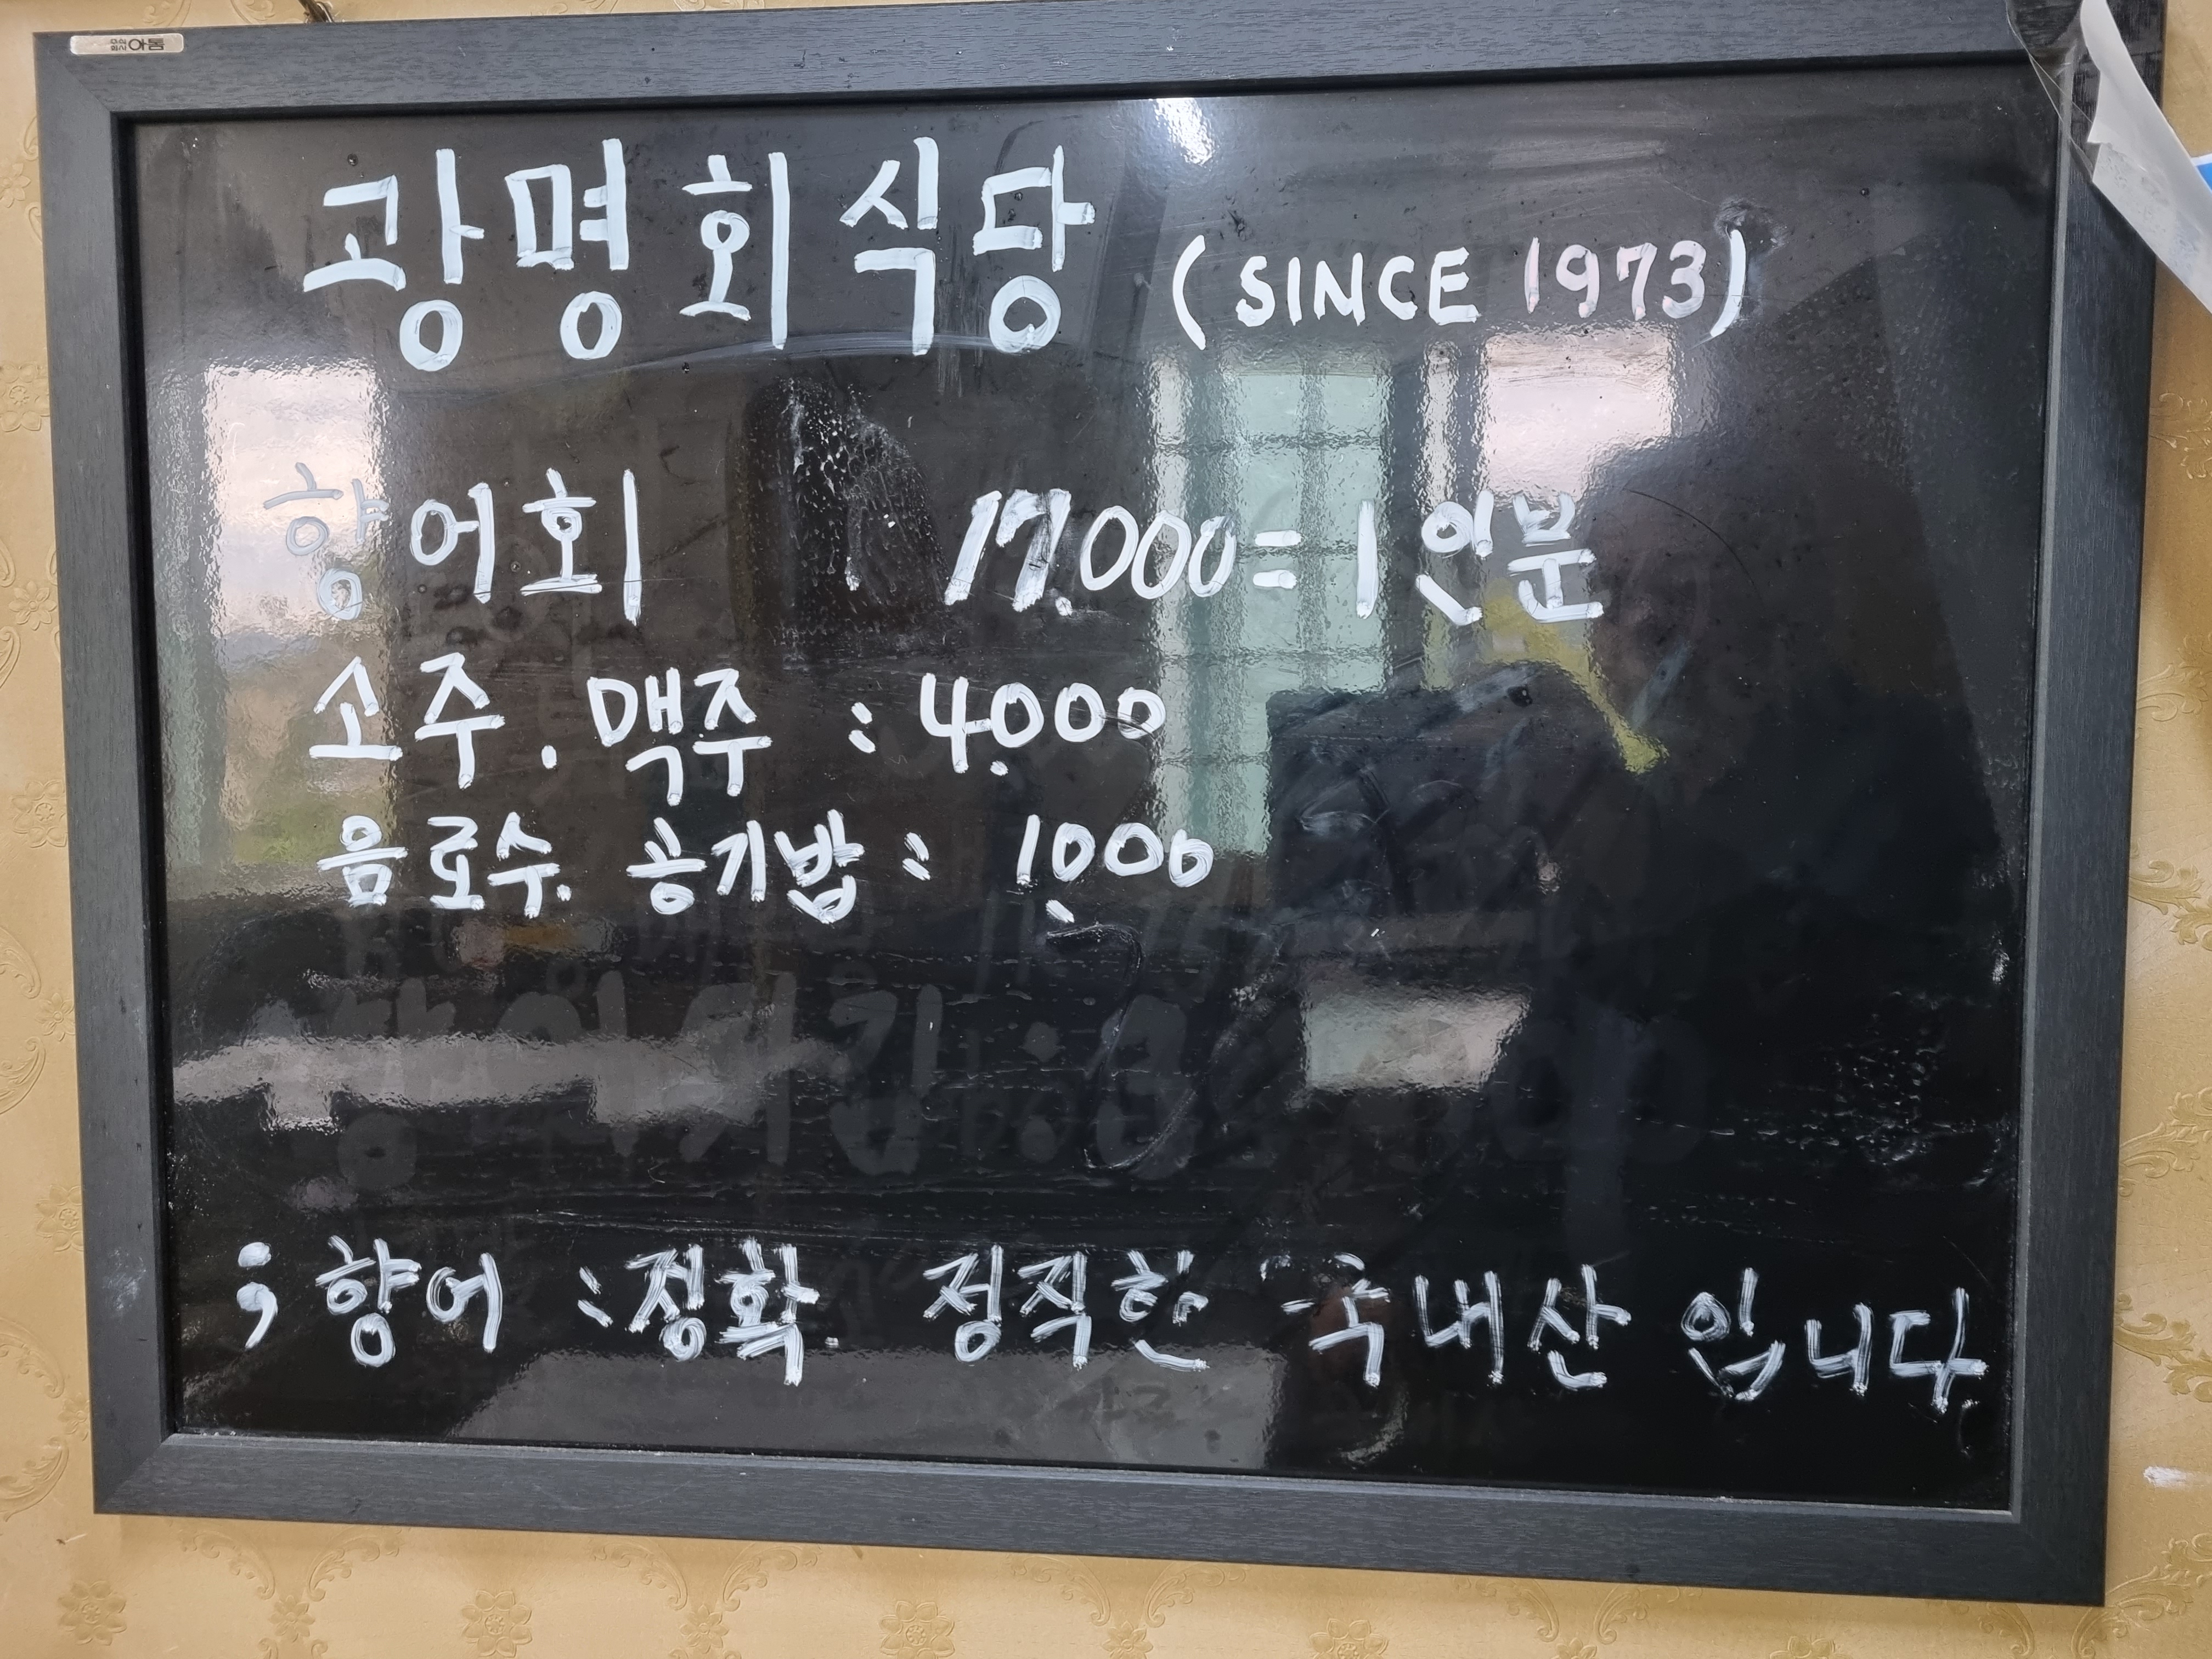 주식회사 아톰
광명회식당 (SINCE 1973)
향어회 : 17.000=1인분
소주.맥주 : 4.000
음료수. 공기밥 : 1.000
; 향어 : 정확. 정직한 국내산 입니다.